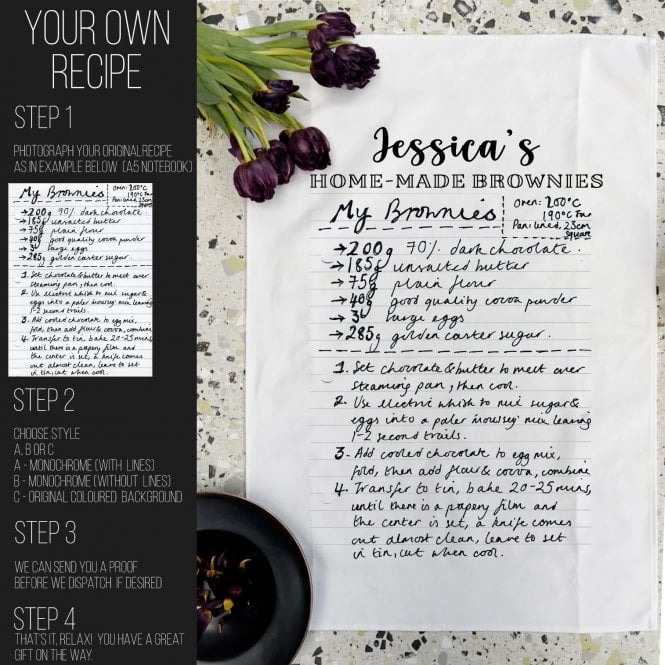 YOUR OWN
RECIPE
STEP 1
PHOTOGRAPH YOUR ORIGINAL RECIPE
AS IN EXAMPLE BELOW (A5 NOTEBOOK)
My Brownies
Oven: 200°C
190°C Fan
Pan: lined, 23cm
square
→ 200g 70% dark chocolate.
→ 185g unsalted butter
→ 75g plain flour
→ 40g good quality cocoa powder
→ 3 large eggs
→ 285g golden caster sugar.
1. Set chocolate & butter to melt over
steaming pan, then cool.
2. Use electric whisk to mix sugar &
eggs into a paler 'moussey' mix leaving
1-2 second trails.
3. Add cooled chocolate to egg mix,
fold, then add flour & cocoa, combine
4. Transfer to tin, bake 20-25 mins,
until there is a papery film and
the center is set, a knife comes
out almost clean, leave to set
in tin, cut when cool.
STEP 2
CHOOSE STYLE
A, B OR C
A - MONOCHROME (WITH LINES)
B - MONOCHROME (WITHOUT LINES)
C - ORIGINAL COLOURED BACKGROUND
STEP 3
WE CAN SEND YOU A PROOF
BEFORE WE DISPATCH IF DESIRED
STEP 4
THAT'S IT, RELAX! YOU HAVE A GREAT
GIFT ON THE WAY.
Jessica's
HOME-MADE BROWNIES
My Brownies
Oven: 200°C
190°C Fan
Pan: lined, 23cm
square
→ 200g 70% dark chocolate.
→ 185g unsalted butter
→ 75g plain flour
→ 40g good quality cocoa powder
→ 3 large eggs
→ 285g golden caster sugar.
1. Set chocolate & butter to melt over
steaming pan, then cool.
2. Use electric whisk to mix sugar &
eggs into a paler 'moussey' mix leaving
1-2 second trails.
3. Add cooled chocolate to egg mix,
fold, then add flour & cocoa, combine
4. Transfer to tin, bake 20-25 mins,
until there is a papery film and
the center is set, a knife comes
out almost clean, leave to set
in tin, cut when cool.